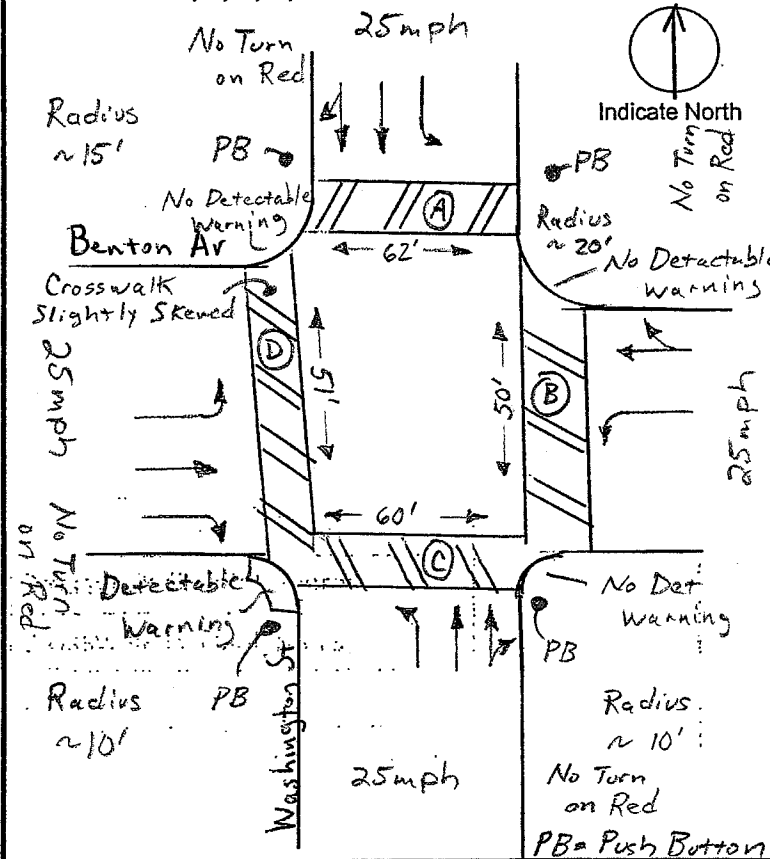 25 mph
No Turn
on Red
Indicate North
Radius
~15'
PB
PB
No Turn
on Red
No Detectable
Warning
A
Radius
~ 20'
No Detactable
Warning
Benton Av
62'
Crosswalk
Slightly Skewed
D
51'
50'
B
25 mph
25 mph
No Turn
on Red
60'
C
Detectable
Warning
No Det
Warning
PB
PB
Radius
~10'
Washington St
25 mph
Radius
~ 10'
No Turn
on Red
PB= Push Button